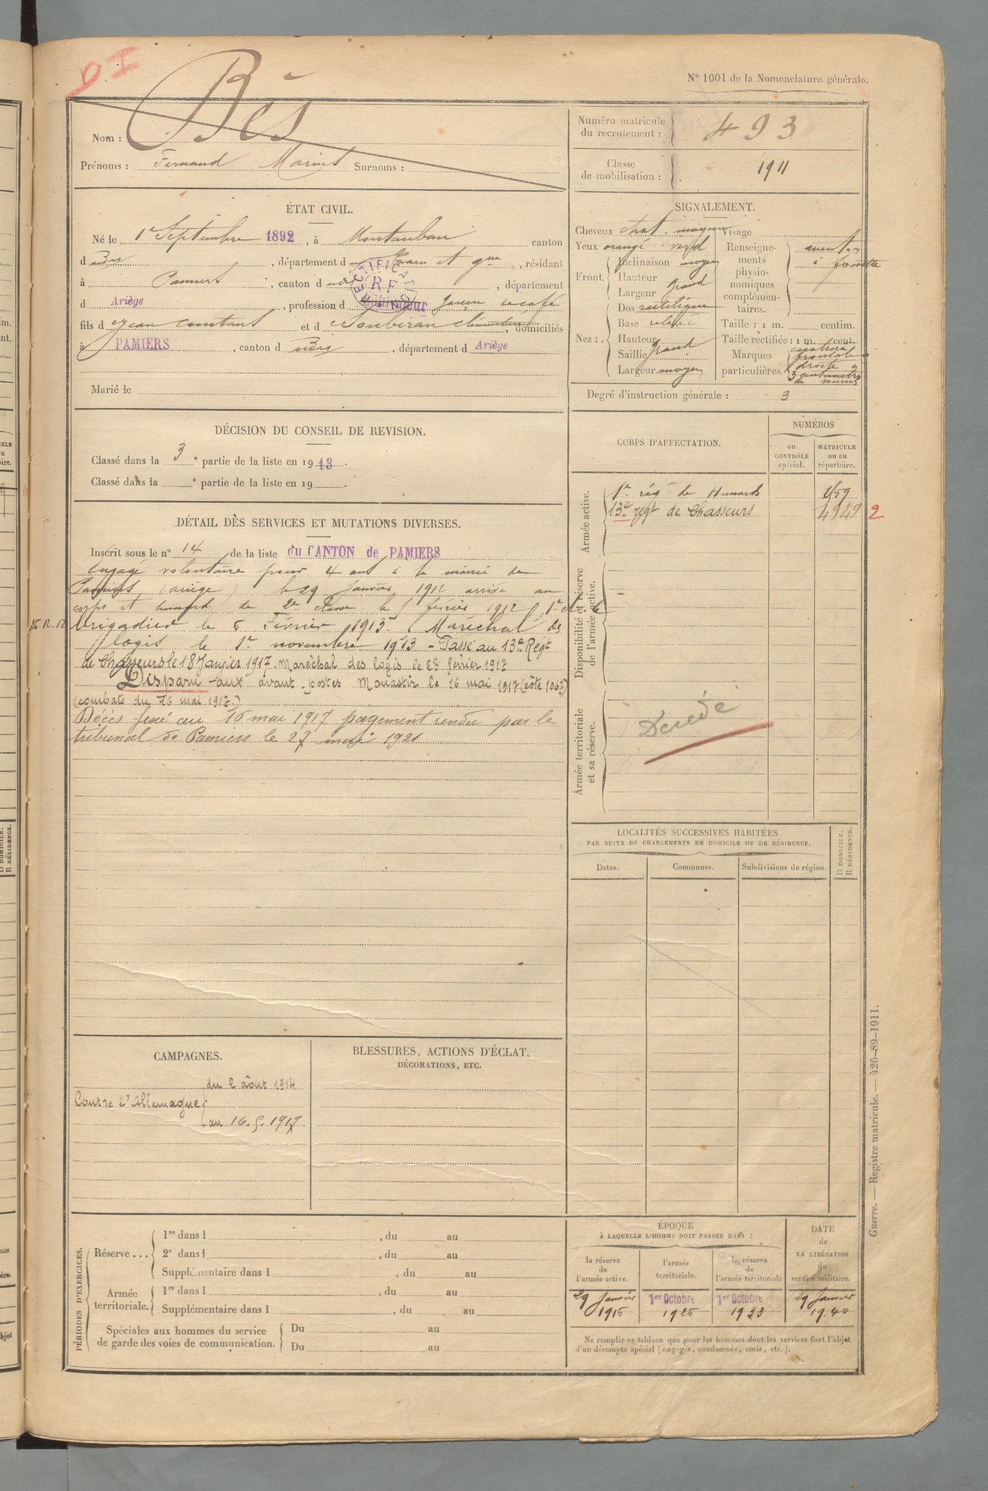 DI
N° 1001 de la Nomenclature générale.
Bès
Nom :
Prénoms : Fernand Marius Surnoms :
Numéro matricule du recrutement : 493
Classe de mobilisation : 1911
ÉTAT CIVIL.
Né le 1er Septembre 1892, à Montauban canton
d udes, département d Tarn et Gne, résidant
à Pamiers, canton d udes, département
d Ariège, profession d garçon de café
fils d Jean Constant et d Soubiran Clémentine, domiciliés
à PAMIERS, canton d udes, département d Ariège
Marié le
RECTIFICATION R.F.
SIGNALEMENT.
Cheveux chat. moyen Visage
Yeux orangé verd
Front. Inclinaison moyen
Hauteur grand
Largeur
Nez : Dos rectiligne
Base relevée
Hauteur
Saillie grand
Largeur moyen
Renseignements physionomiques complémentaires.
Taille : 1 m. centim.
Taille rectifiée : 1 m. cent.
Marques particulières. cicatrice frontale droite 3 centimètres
Degré d'instruction générale : 3
DÉCISION DU CONSEIL DE REVISION.
Classé dans la 3e partie de la liste en 1913.
Classé dans la e partie de la liste en 19 .
CORPS D'AFFECTATION.
NUMÉROS
AU CONTRÔLE spécial.
MATRICULE OU AU répertoire.
Armée active.
1er rég de Hussards
13e régt de Chasseurs 4949 2
Disponibilité et réserve de l'armée active.
Armée territoriale et sa réserve.
Décédé
DÉTAIL DES SERVICES ET MUTATIONS DIVERSES.
Inscrit sous le n° 14 de la liste du CANTON de PAMIERS
Engagé volontaire pour 4 ans à la mairie de
Pamiers (ariège) le 29 Janvier 1912 arrivé au
corps et hussard de 2e classe le 5 février 1912
brigadier le 5 Février 1913. Maréchal des
logis le 1er novembre 1913 - Passé au 13e Régt
de Chasseurs le 18 Janvier 1917. Maréchal des logis le 28 février 1917
Disparu aux avant-postes Monastir le 16 mai 1917 (côte 1062)
(combats du 16 mai 1917.)
Décès fixé au 16 mai 1917 par jugement rendu par le
tribunal de Pamiers le 27 mai 1921
LOCALITÉS SUCCESSIVES HABITÉES
PAR SUITE DE CHANGEMENTS DE DOMICILE OU DE RÉSIDENCE.
Dates. Communes. Subdivisions de région. D DOMICILE. R RÉSIDENCE.
CAMPAGNES.
Contre l'Allemagne : du 2 août 1914
au 16.5.1917
BLESSURES, ACTIONS D'ÉCLAT,
DÉCORATIONS, ETC.
PÉRIODES D'EXERCICES.
Réserve ... 1re dans l , du au
2e dans l , du au
Supplémentaire dans l , du au
Armée territoriale. 1re dans l , du au
Supplémentaire dans l , du au
Spéciales aux hommes du service de garde des voies de communication. Du au
Du au
ÉPOQUE
À LAQUELLE L'HOMME DOIT PASSER DANS :
la réserve de l'armée active.
l'armée territoriale.
la réserve de l'armée territoriale
DATE DE LA LIBÉRATION du service militaire.
29 Janvier 1916
1er Octobre 1926
1er Octobre 1933
29 Janvier 1940
Ne remplir ce tableau que pour les hommes dont les services font l'objet
d'un décompte spécial (engagés, condamnés, omis, etc.).
Guerre. — Registre matricule. — 426-89-1911.